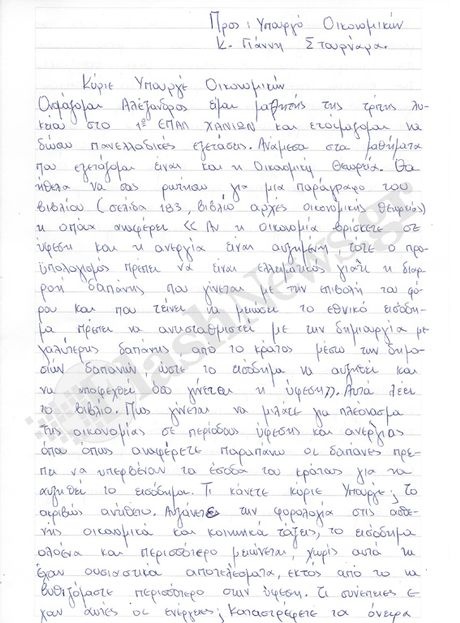 Προς: Υπουργό Οικονομικών
κ. Γιάννη Στουρνάρα.
Κύριε Υπουργέ Οικονομικών
Ονομάζομαι Αλέξανδρος είμαι μαθητής της τρίτης λυ-
κείου στο 1ο ΕΠΑΛ ΧΑΝΙΩΝ και ετοιμάζομαι να
δώσω πανελλαδικές εξετάσεις. Ανάμεσα στα μαθήματα
που εξετάζομαι είναι και η Οικονομική Θεωρία. Θα
ήθελα να σας ρωτήσω για μια παράγραφο του
βιβλίου (σελίδα 183, βιβλίο αρχές οικονομικής θεωρείας)
η οποία αναφέρει << Αν η οικονομία βρίσκετε σε
ύφεση και η ανεργία είναι αυξημένη τότε ο προ-
ϋπολογισμός πρέπει να είναι ελλειματικός γιατί η διαρ-
ροή δαπάνης που γίνεται με την επιβολή του φό-
ρου και που τείνει να μειώσει το εθνικό εισόδη-
μα πρέπει να αντισταθμιστεί με την δημιουργία με-
γαλύτερης δαπάνης από το κράτος μέσω των δημο-
σίων δαπανών ώστε το εισόδημα να αυξηθεί και
να υποφερθεί όσο γίνεται η ύφεση>>. Αυτά λέει
το βιβλίο. Πως γίνεται να μιλάτε για πλεόνασμα
της οικονομίας σε περίοδους ύφεσης και ανεργίας
όπου όπως αναφέρετε παραπάνω οι δαπάνες πρέ-
πει να υπερβαίναν τα έσοδα του κράτους για να
αυξηθεί το εισόδημα. Τι κάνετε κύριε Υπουργέ; Το
ακριβώς αντίθετο. Αυξάνετε την φορολογία στις ασθε-
νής οικονομικά και κοινωνικά τάξεις, το εισόδημα
ολοένα και περισσότερο μειώνεται, χωρίς αυτά να
έχουν ουσιαστικά αποτελέσματα, εκτός από το να
βυθιζόμαστε περισσότερο στην ύφεση. Τι συνέπειες έ-
χουν αυτές οι ενέργειες; Καταστρέφετε τα όνειρα
flashNews.gr